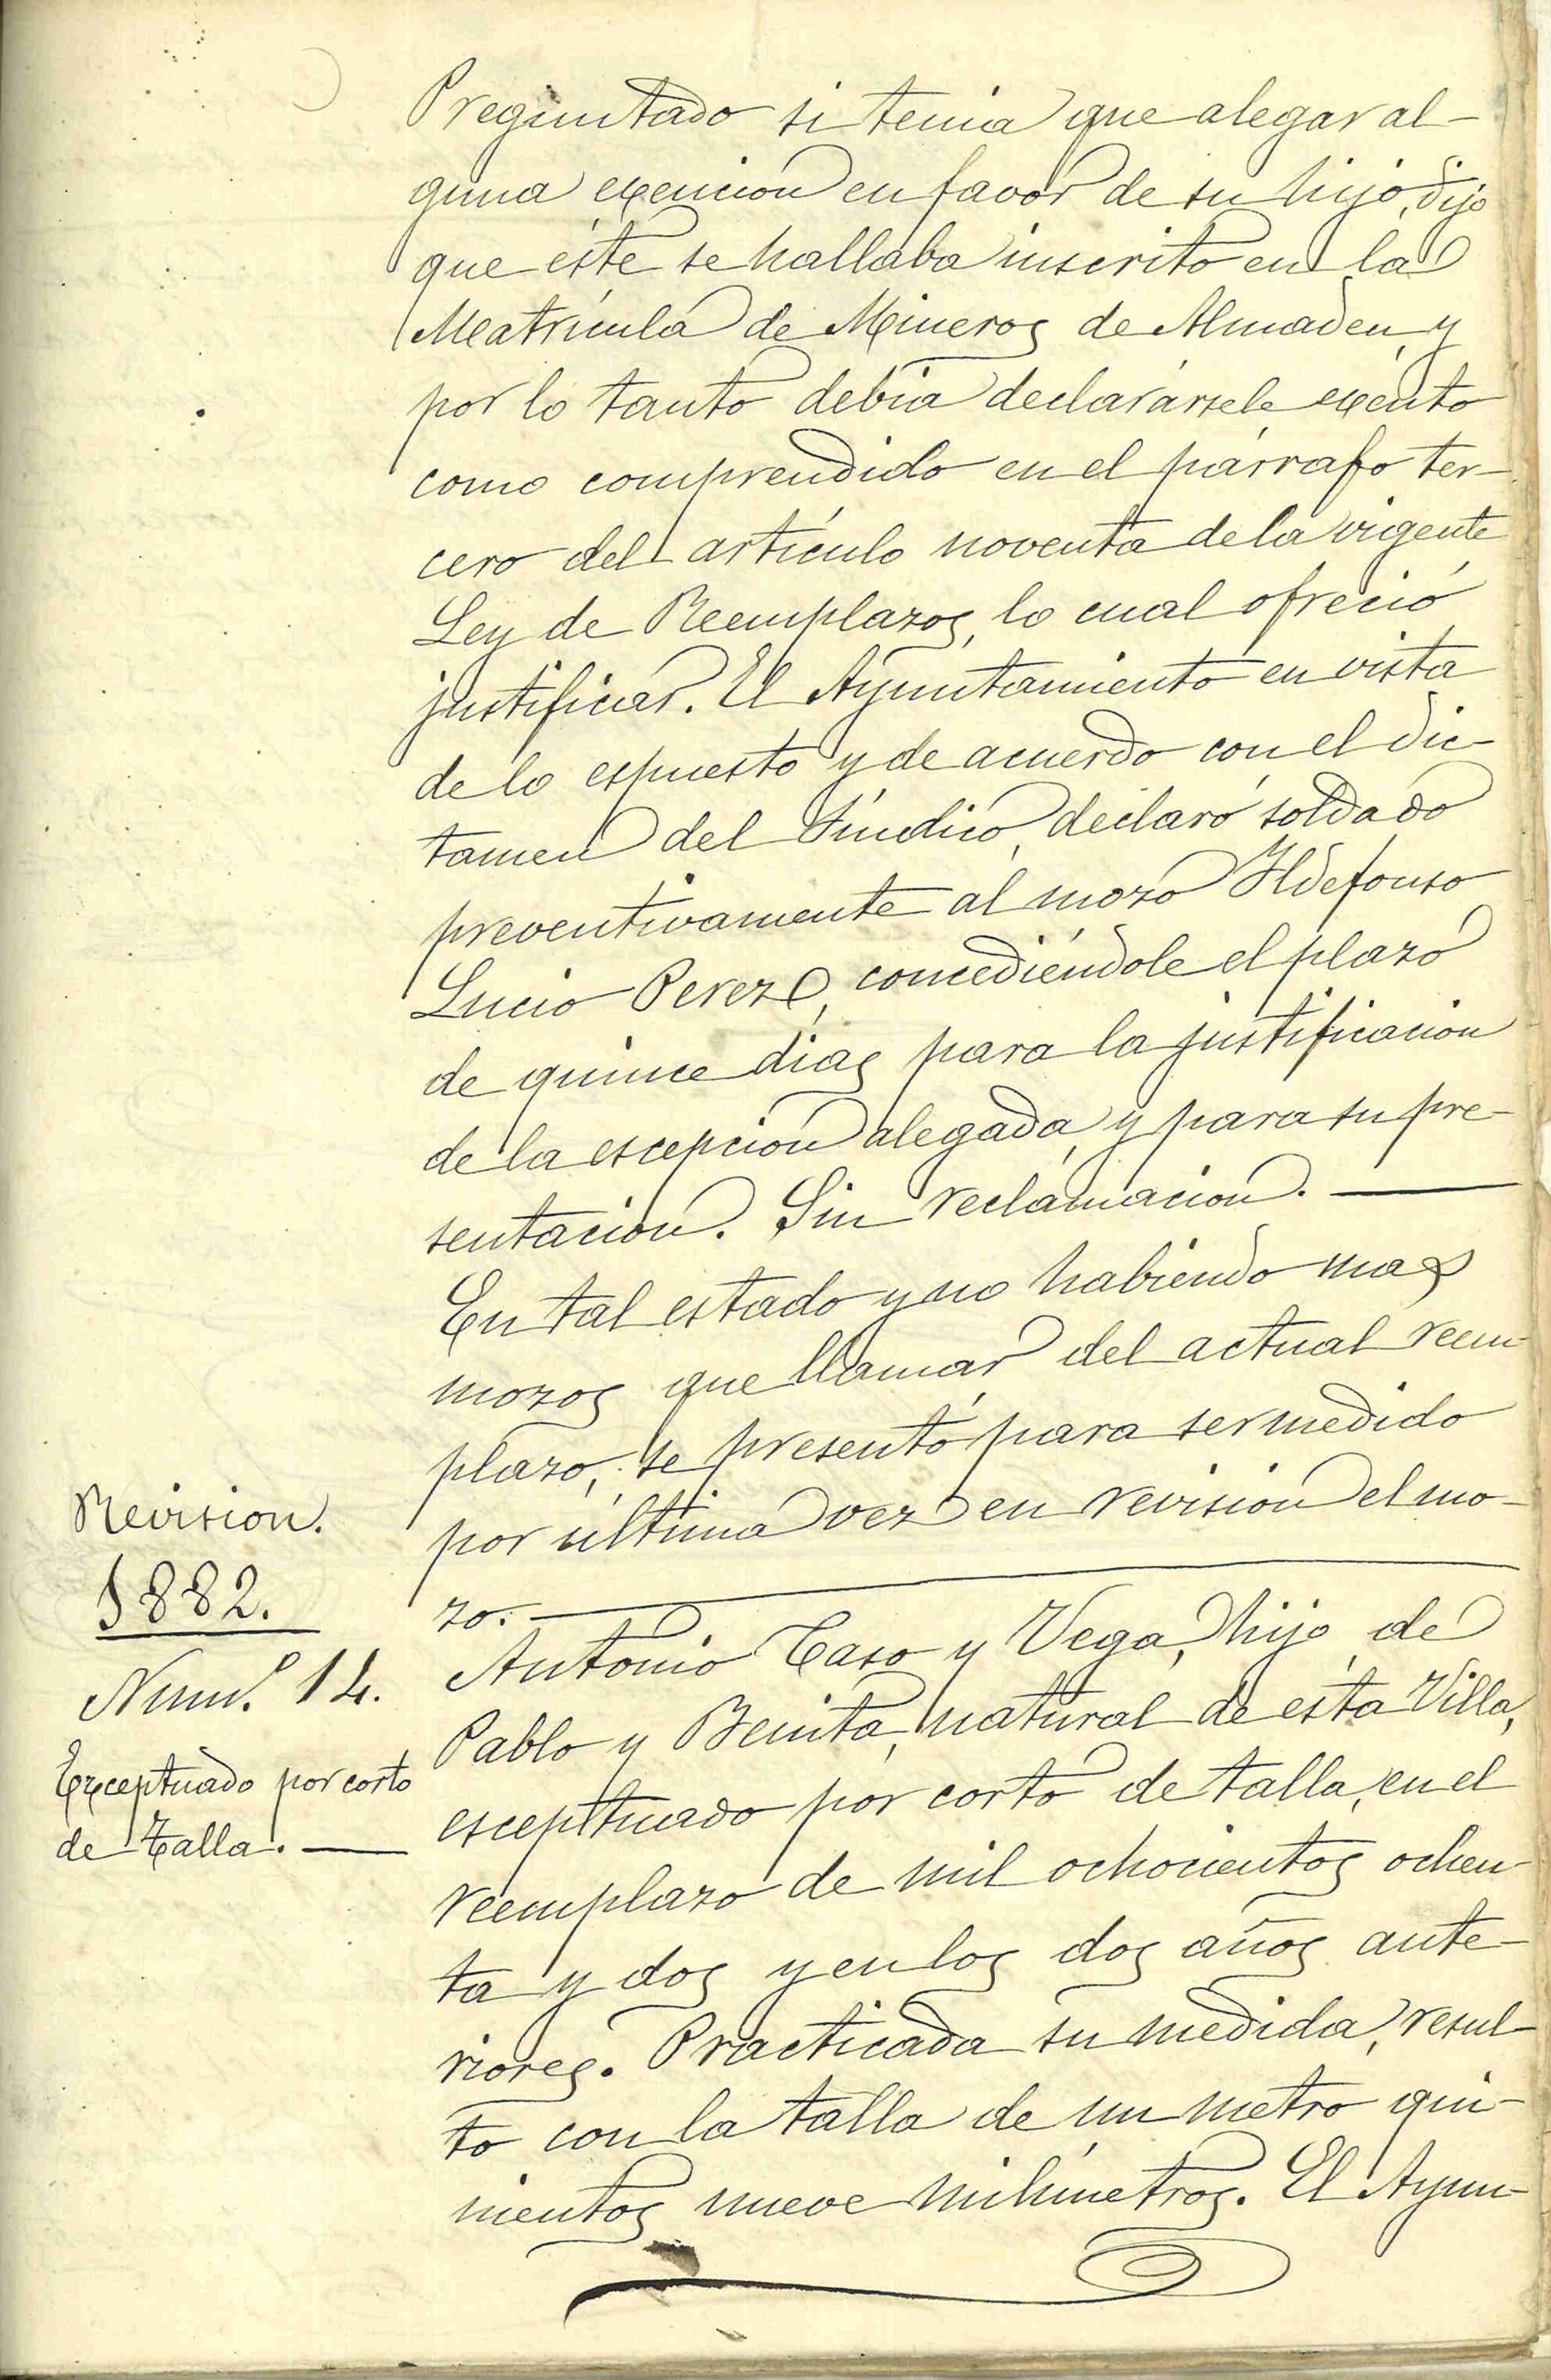 Preguntado si tenia que alegar al-
guna exencion en favor de su hijo, dijo
que éste se hallaba inscrito en la
Matrícula de Mineros de Almaden, y
por lo tanto debia declarársele exento
como comprendido en el párrafo ter-
cero del artículo noventa de la vigente
Ley de Reemplazos, lo cual ofreció
justificar. El Ayuntamiento en vista
de lo espuesto y de acuerdo con el dic-
tamen del Síndico, declaró soldado
preventivamente al mozo Ildefonso
Lucio Perez, concediéndole el plazo
de quince dias para la justificacion
de la escepcion alegada, y para su pre-
sentacion. Sin reclamacion. —
En tal estado y no habiendo mas
mozos que llamar del actual reem-
plazo, se presentó para ser medido
por última vez en revision el mo-
zo. —
Revision.
1882.
Num.º 14.
Exceptuado por corto
de talla. —
Antonio Caso y Vega, hijo de
Pablo y Benita, natural de esta Villa,
esceptuado por corto de talla, en el
reemplazo de mil ochocientos ochen-
ta y dos y en los dos años ante-
riores. Practicada su medida, resul-
to con la talla de un metro qui-
nientos nueve milímetros. El Ayun-